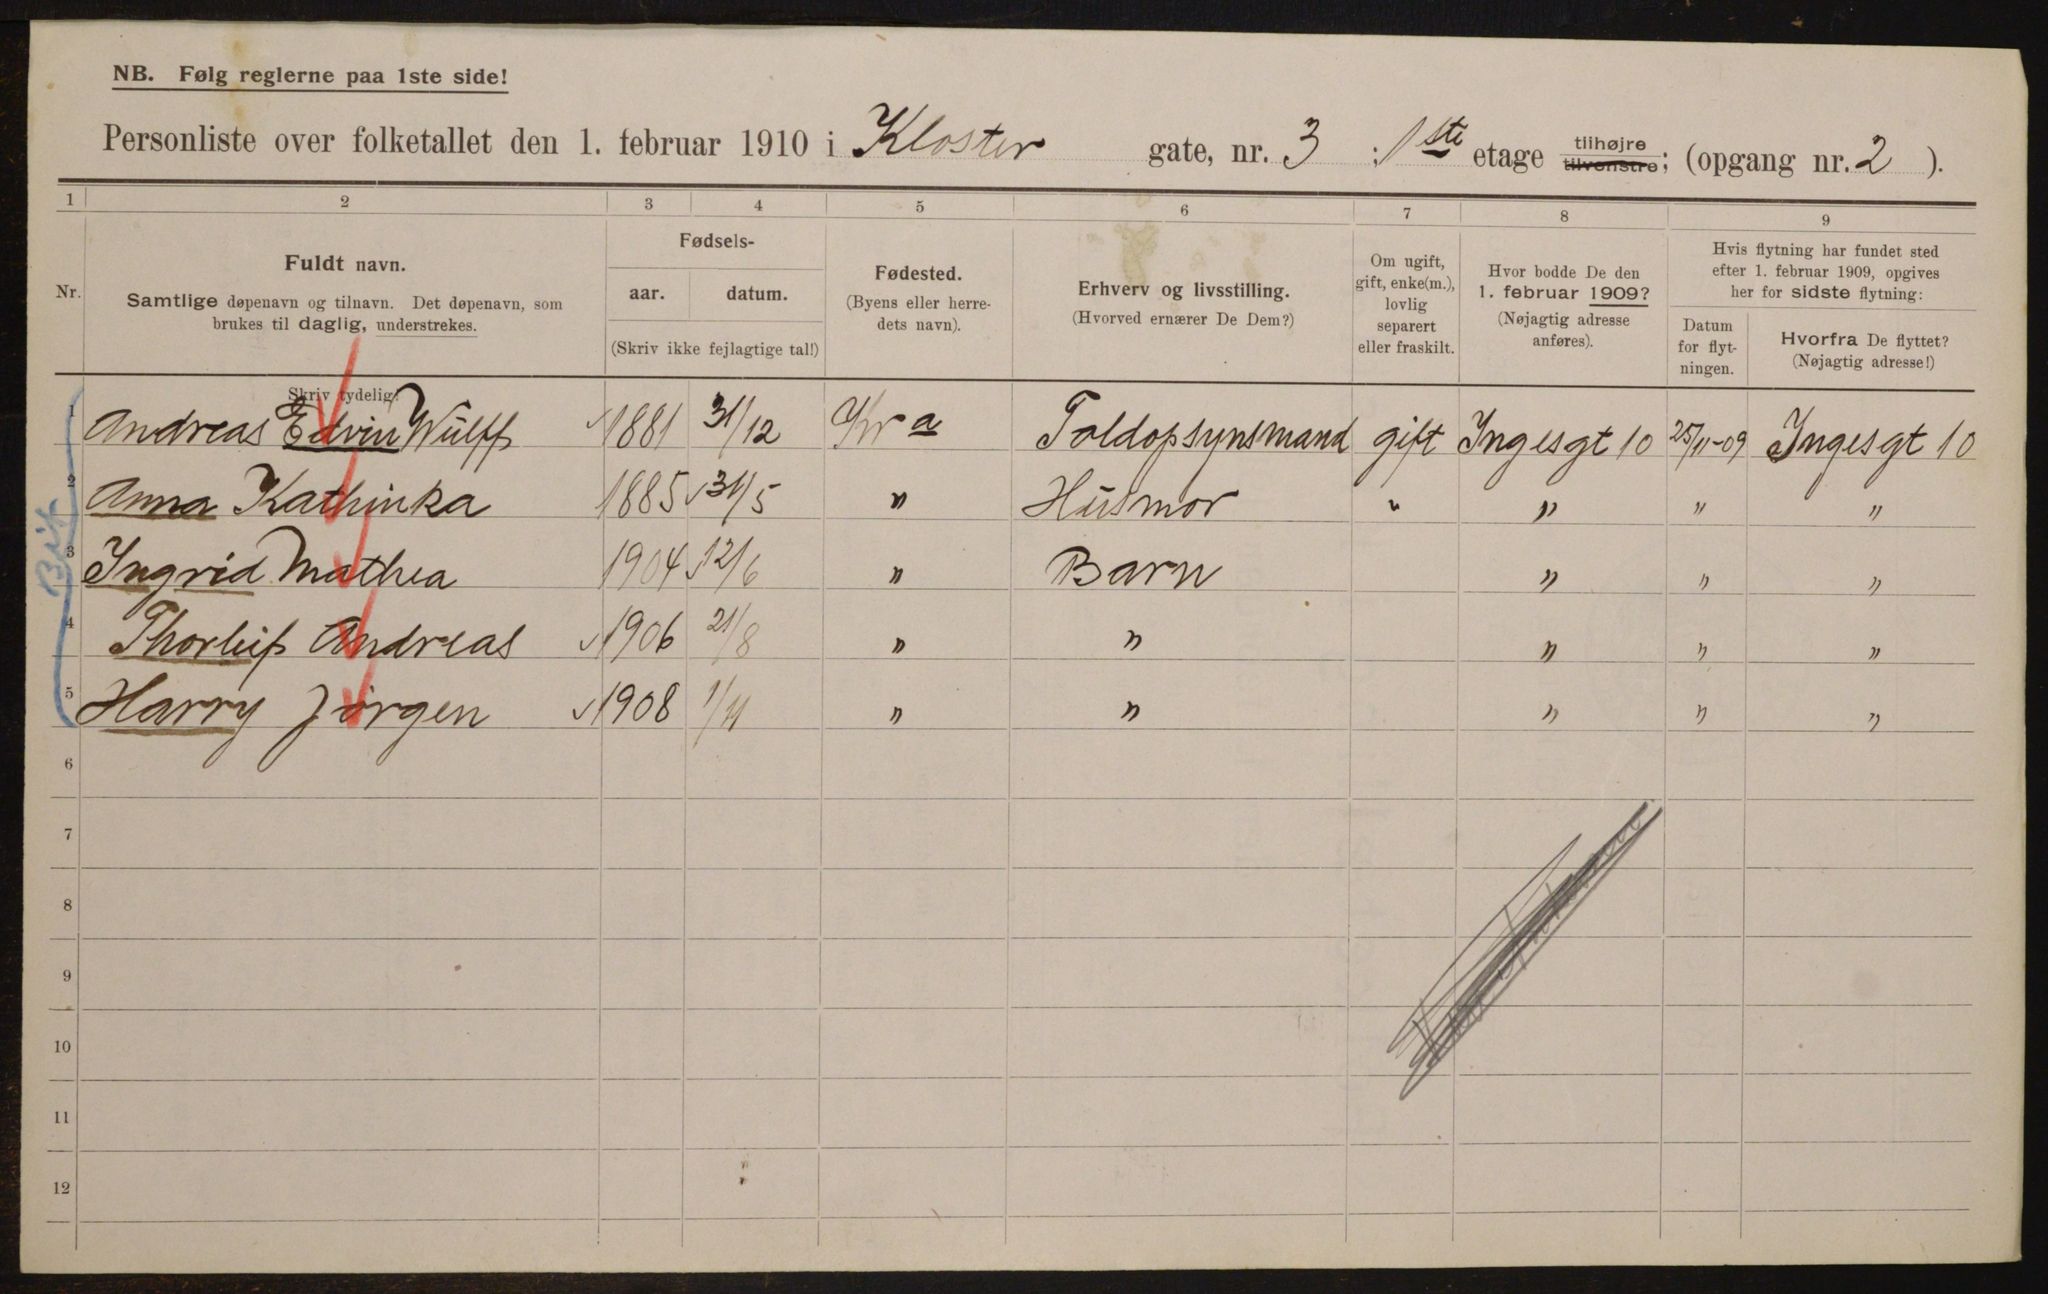 NB. Følg reglerne paa 1ste side!
Personliste over folketallet den 1. februar 1910 i Kloster gate, nr. 3 : 1ste etage tilhøjre tilvenstre; (opgang nr. 2 ).
1 2 3 4 5 6 7 8 9
Nr.
Fuldt navn.
Samtlige døpenavn og tilnavn. Det døpenavn, som
brukes til daglig, understrekes.
Skriv tydelig!
Fødsels-
aar. datum.
(Skriv ikke fejlagtige tal!)
Fødested.
(Byens eller herre-
dets navn).
Erhverv og livsstilling.
(Hvorved ernærer De Dem?)
Om ugift,
gift, enke(m.),
lovlig
separert
eller fraskilt.
Hvor bodde De den
1. februar 1909?
(Nøjagtig adresse
anføres).
Hvis flytning har fundet sted
efter 1. februar 1909, opgives
her for sidste flytning:
Datum
for flyt-
ningen.
Hvorfra De flyttet?
(Nøjagtig adresse!)
1 Andreas Edvin Wulff 1881 31/12 Kra Toldopsynsmand gift Ingesgt 10 25/11-09 Ingesgt 10
2 Anna Kathinka 1885 31/5 " Husmor " " " "
3 Ingrid Mathea 1904 12/6 " Barn " " "
4 Thorleif Andreas 1906 21/8 " " " " "
5 Harry Jørgen 1908 1/11 " " " " "
6
7
8
9
10
11
12